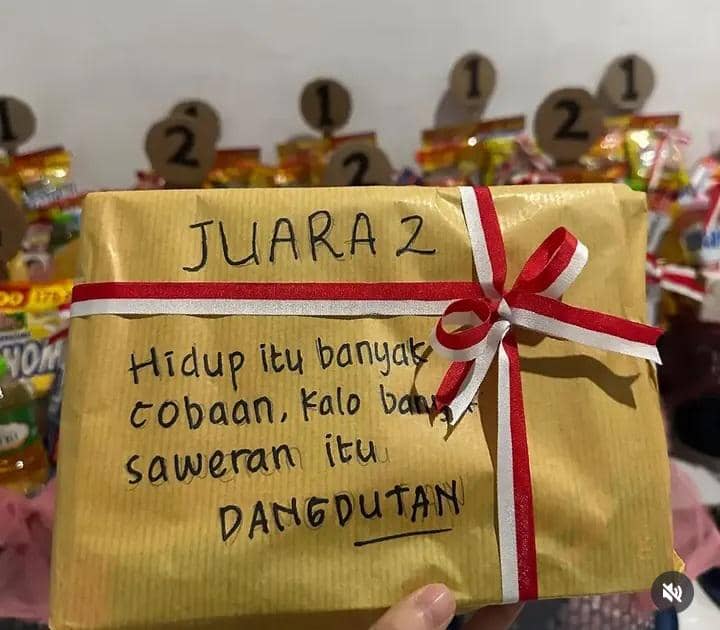 1
2
1
2
1
2
1
JUARA 2
Hidup itu banyak
cobaan, kalo banyak
saweran itu
DANGDUTAN